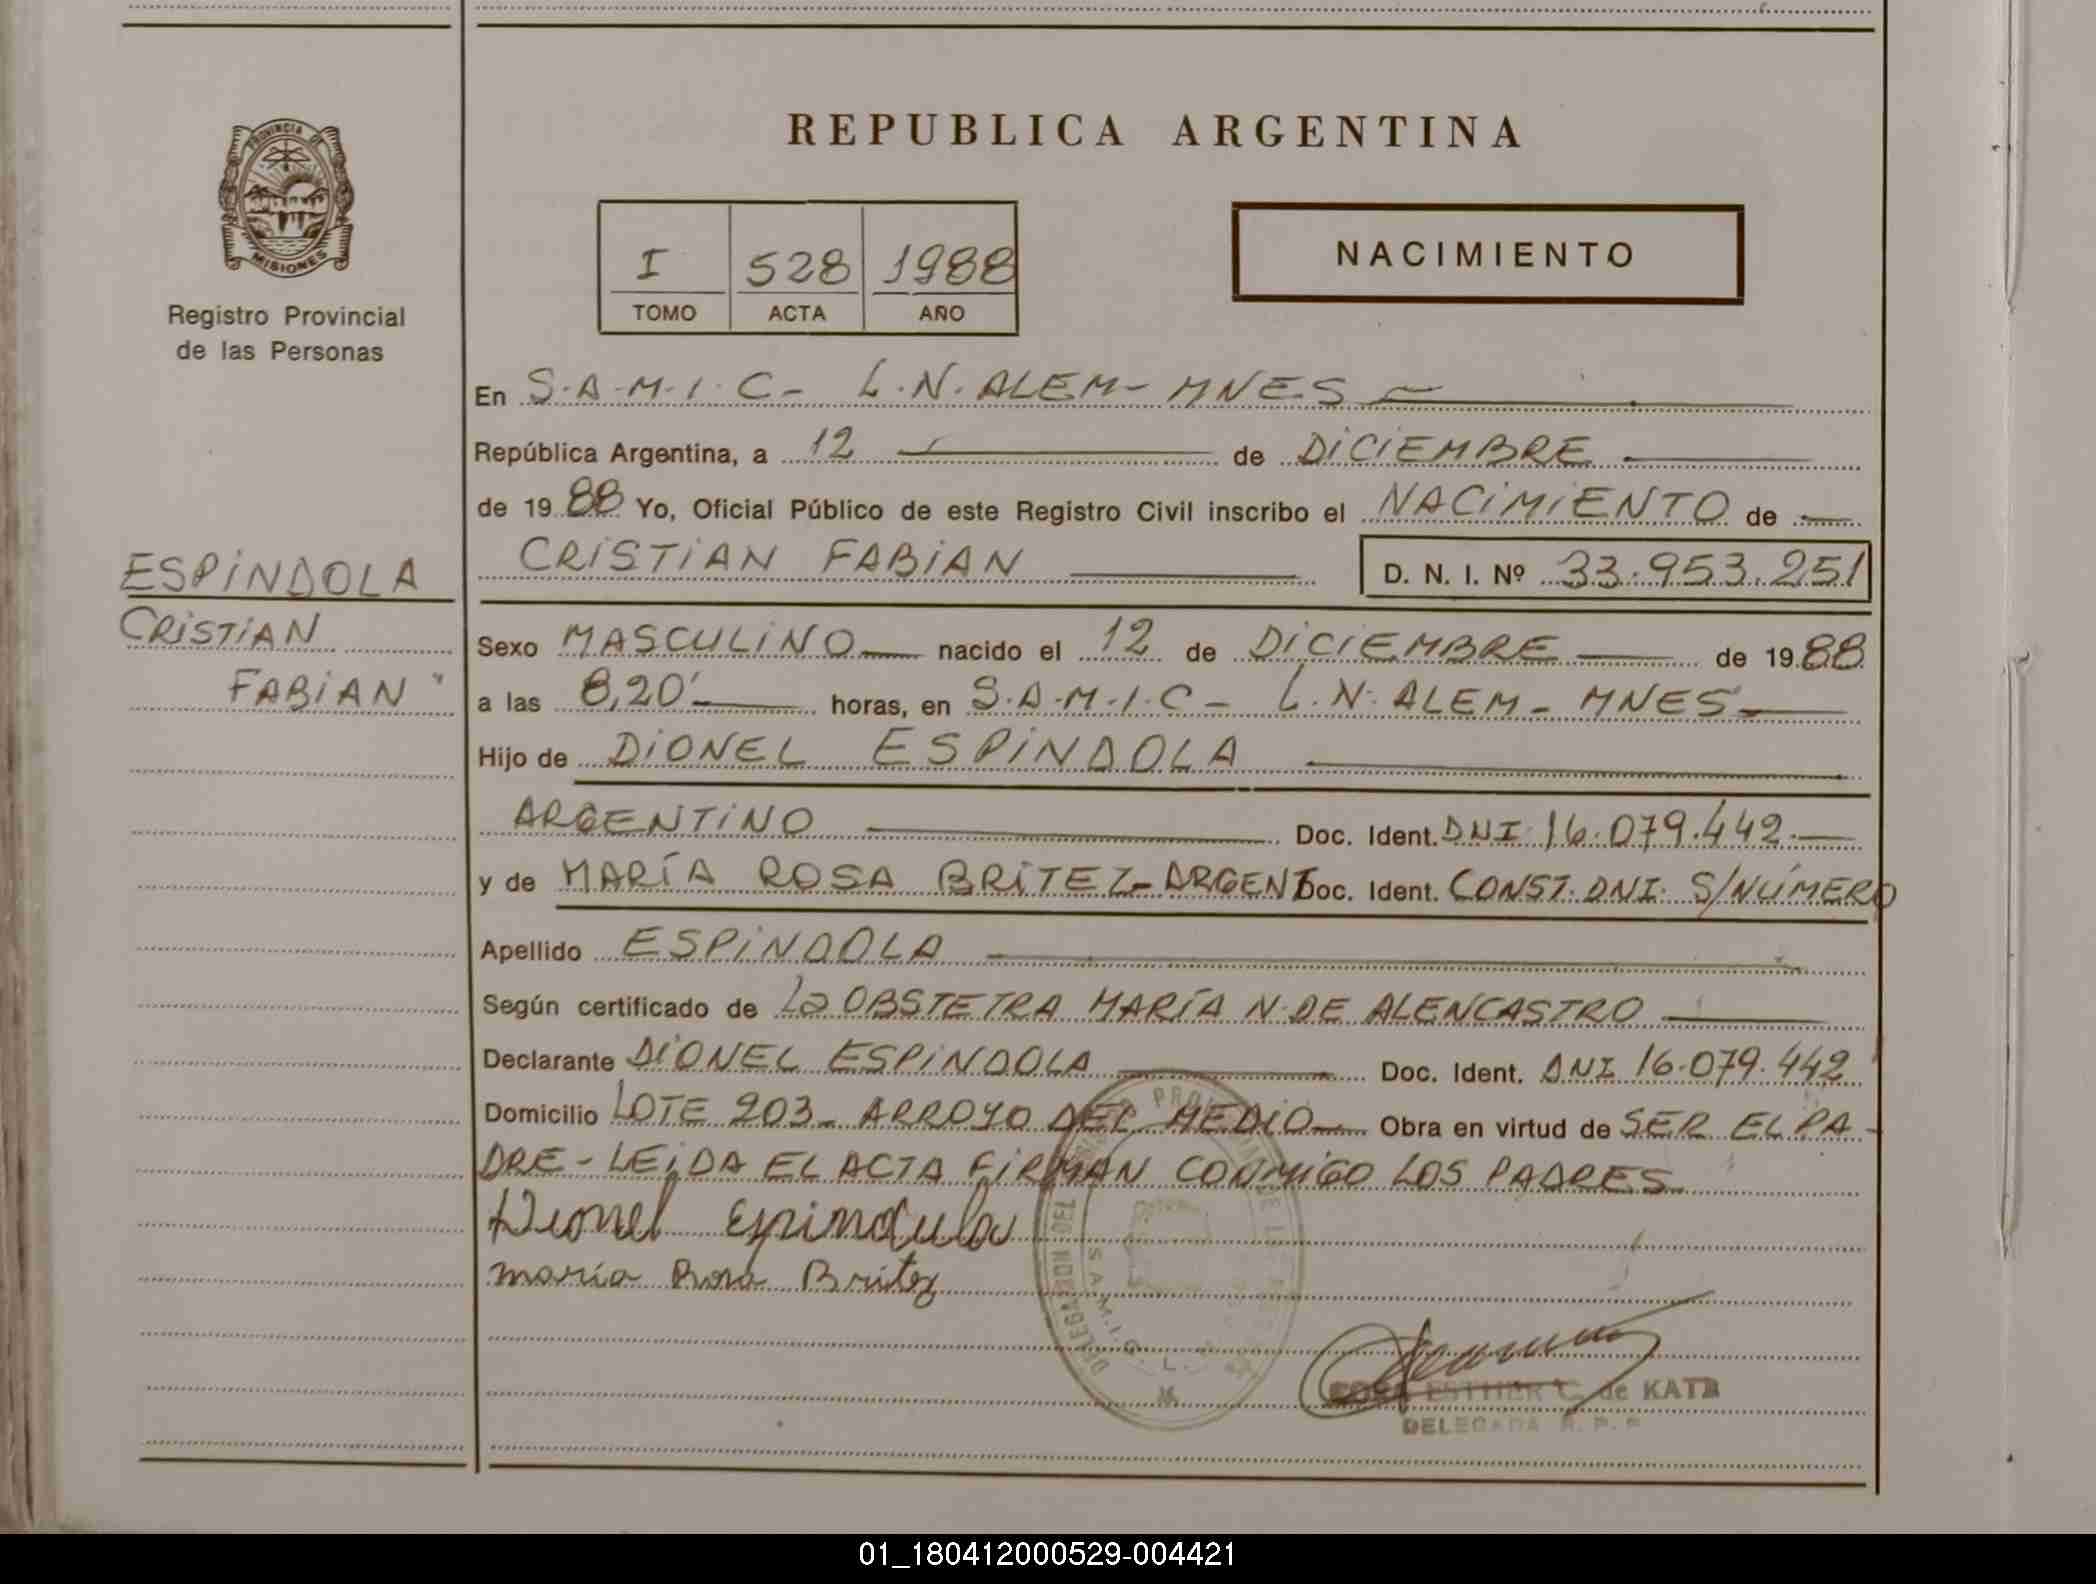 PROVINCIA DE
MISIONES
Registro Provincial
de las Personas
ESPINDOLA
CRISTIAN
FABIAN
REPUBLICA ARGENTINA
I 528 1988
TOMO ACTA AÑO
NACIMIENTO
En S.A.M.I.C- L.N.ALEM- MNES
República Argentina, a 12 de DICIEMBRE
de 1988 Yo, Oficial Público de este Registro Civil inscribo el NACIMIENTO de
CRISTIAN FABIAN D. N. I. Nº 33.953.251
Sexo MASCULINO nacido el 12 de DICIEMBRE de 1988
a las 8,20' horas, en S.A.M.I.C- L.N.ALEM- MNES
Hijo de DIONEL ESPINDOLA
ARGENTINO Doc. Ident. DNI 16.079.442
y de MARÍA ROSA BRITEZ-ARGENT Doc. Ident. CONST. DNI. S/NÚMERO
Apellido ESPINDOLA
Según certificado de La OBSTETRA MARÍA N. DE ALENCASTRO
Declarante DIONEL ESPINDOLA Doc. Ident. DNI 16.079.442
Domicilio LOTE 203- ARROYO DEL MEDIO Obra en virtud de SER EL PA-
DRE- LEIDA EL ACTA FIRMAN CONMIGO LOS PADRES
Dionel Espindula
maría Rosa Britez
ESTHER C. de KATZ
DELEGADA R. P. P
DELEGA DEL
S.A.M.I.C. L.
01_180412000529-004421